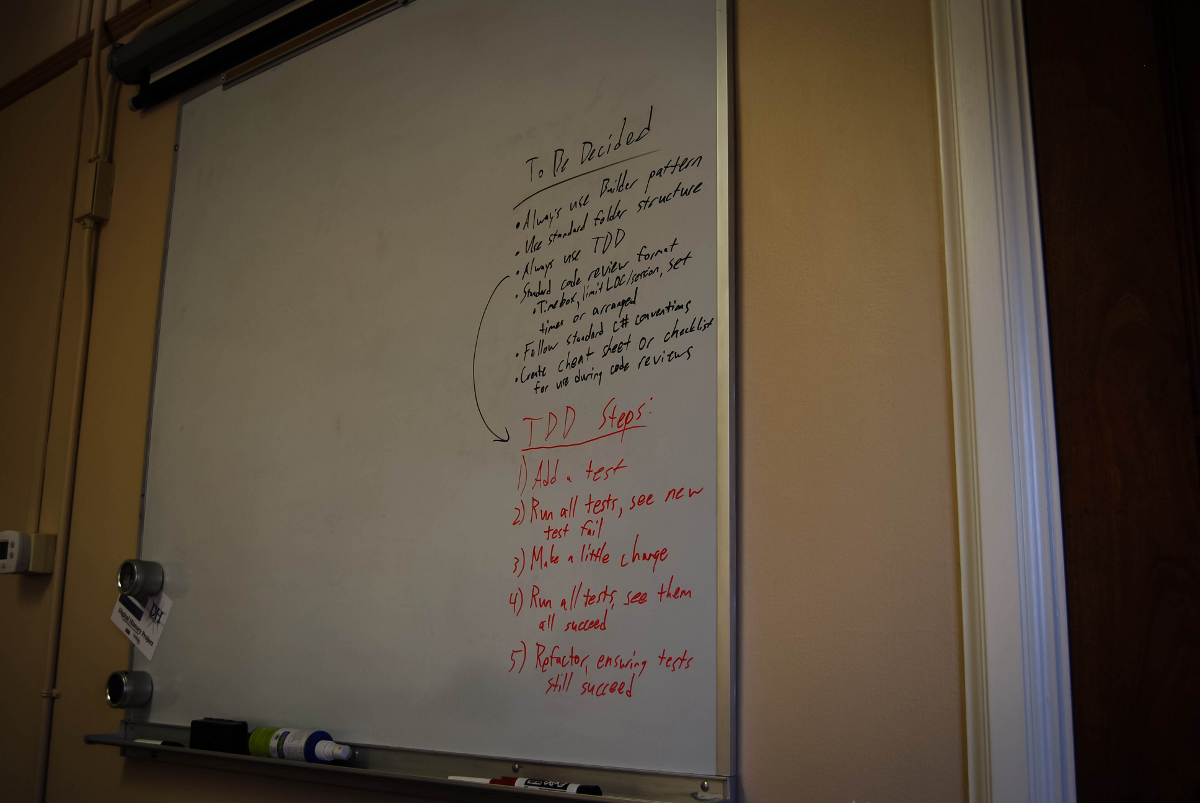 To Be Decided
• Always use Builder pattern
• Use standard folder structure
• Always use TDD
• Standard code review format
• Timebox, limit LOC/session, set
times or arranged
• Follow standard C# conventions
• Create cheat sheet or checklist
for use during code reviews
TDD Steps:
1) Add a test
2) Run all tests, see new
test fail
3) Make a little change
4) Run all tests, see them
all succeed
5) Refactor, ensuring tests
still succeed
DH
Digital History Project